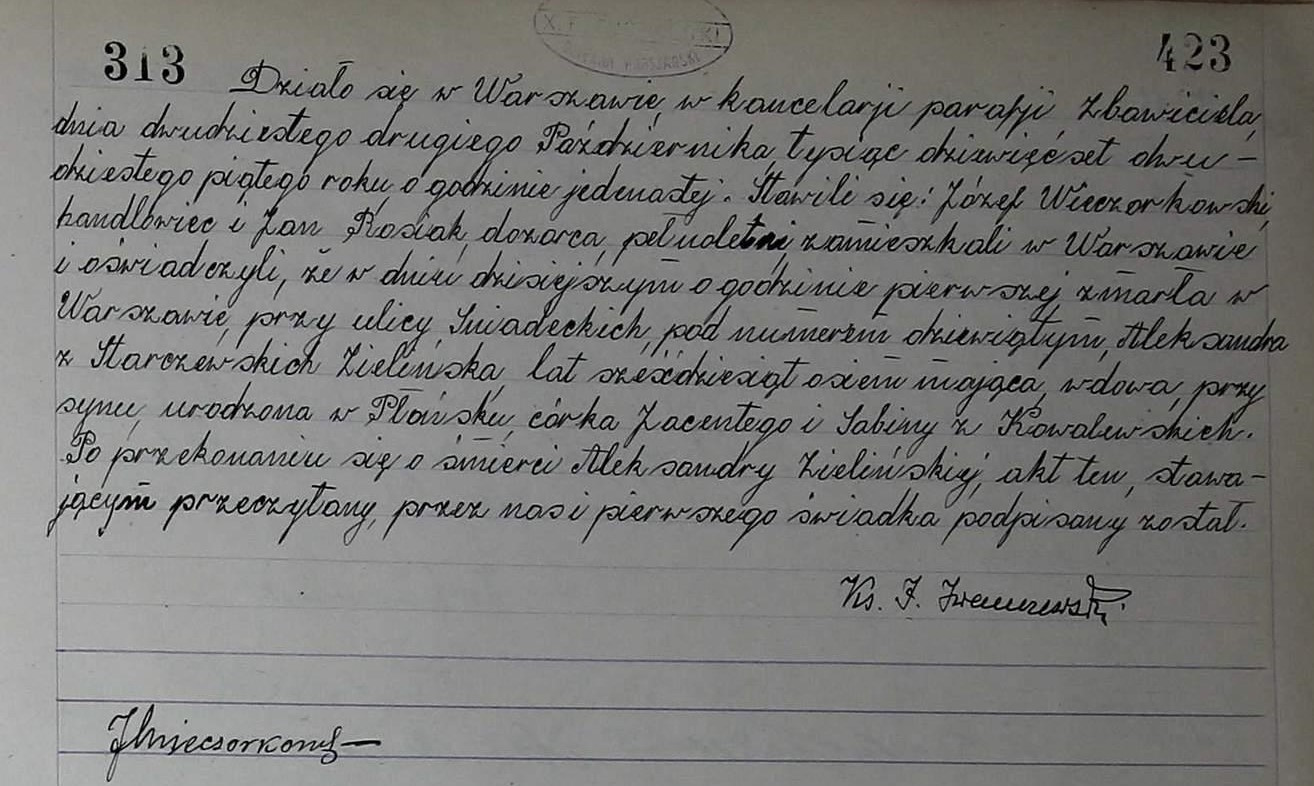 313
423
Działo się w Warszawie, w kancelarji parafji Zbawiciela,
dnia dwudziestego drugiego Października, tysiąc dziewięćset dwu-
dziestego piątego roku, o godzinie jedenastej. Stawili się: Józef Wieczorkowski,
handlowiec i Jan Rosiak, dozorca, pełnoletni, zamieszkali w Warszawie
i oświadczyli, że w dniu dzisiejszym o godzinie pierwszej zmarła w
Warszawie, przy ulicy Śniadeckich, pod numerem dziewiątym, Aleksandra
z Starczewskich Zielińska, lat sześćdziesiąt osiem mająca, wdowa, przy
synu, urodzona w Płońsku, córka Jacentego i Sabiny z Kowalewskich.
Po przekonaniu się o śmierci Aleksandry Zielińskiej, akt ten, stawa-
jącym przeczytany, przez nas i pierwszego świadka podpisany został.
Ks. J.
JWieczorkowski